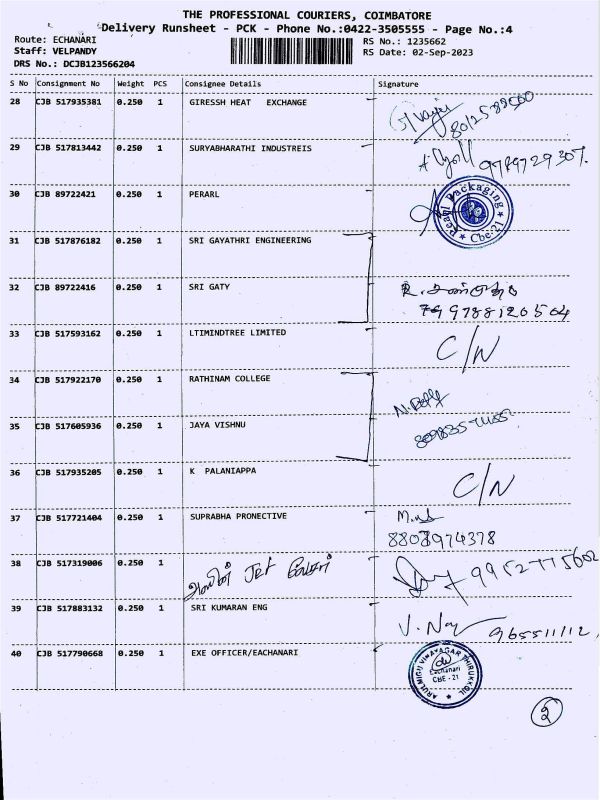 THE PROFESSIONAL COURIERS, COIMBATORE
Delivery Runsheet - PCK - Phone No.:0422-3505555 - Page No.:4
Route: ECHANARI RS No.: 1235662
Staff: VELPANDY RS Date: 02-Sep-2023
DRS No.: DCJB123566204
S No Consignment No Weight PCS Consignee Details Signature
28 CJB 517935381 0.250 1 GIRESSH HEAT EXCHANGE
29 CJB 517813442 0.250 1 SURYABHARATHI INDUSTREIS
30 CJB 89722421 0.250 1 PERARL
Pearl Packaging
Cbe-21
31 CJB 517876182 0.250 1 SRI GAYATHRI ENGINEERING
32 CJB 89722416 0.250 1 SRI GATY
33 CJB 517593162 0.250 1 LTIMINDTREE LIMITED C/N
34 CJB 517922170 0.250 1 RATHINAM COLLEGE
35 CJB 517605936 0.250 1 JAYA VISHNU
36 CJB 517935205 0.250 1 K PALANIAPPA C/N
37 CJB 517721404 0.250 1 SUPRABHA PRONECTIVE
38 CJB 517319006 0.250 1 JET 9952775602
39 CJB 517883132 0.250 1 SRI KUMARAN ENG
40 CJB 517790668 0.250 1 EXE OFFICER/EACHANARI
ARULMIGU VINAYAGAR THIRUKKOIL
Eachanari
CBE - 21
2